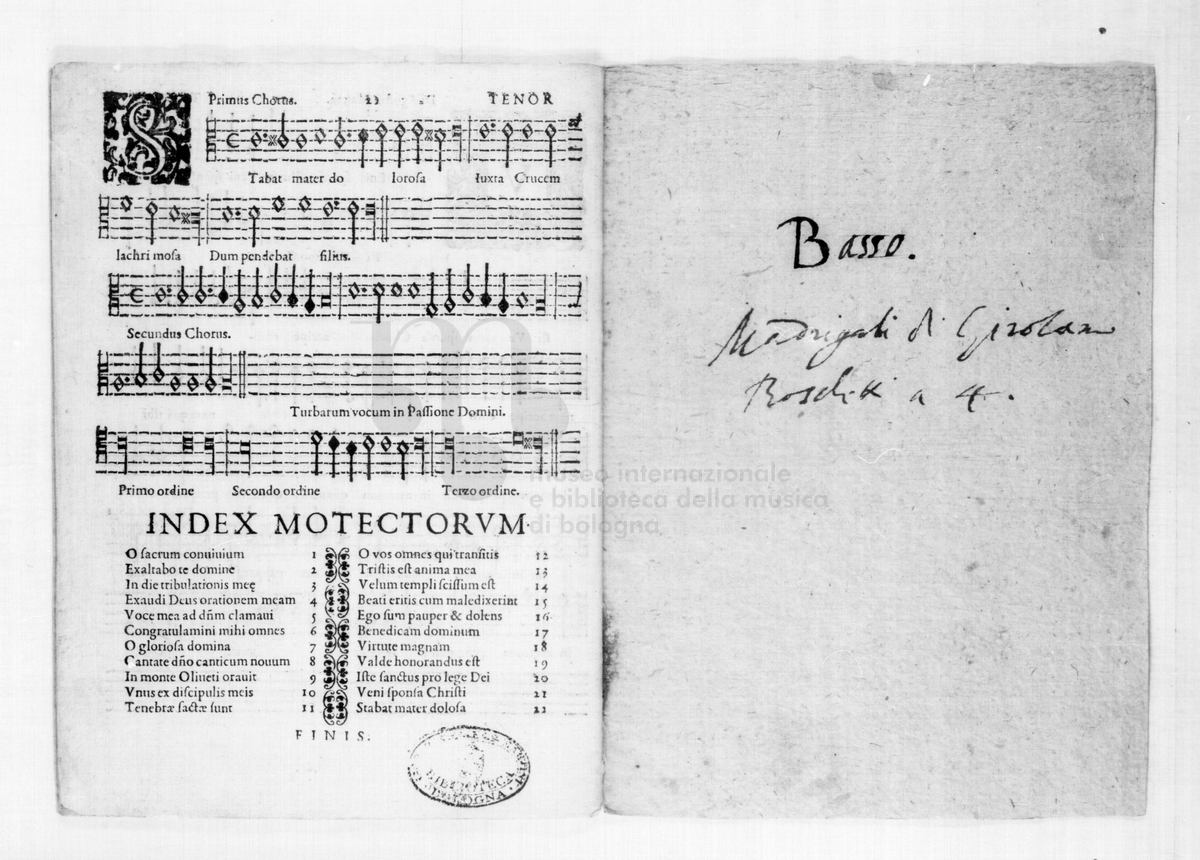 S
Primus Chorus. 23 TENOR
Tabat mater do lorosa Iuxta Crucem
lachri mosa Dum pendebat filius.
Secundus Chorus.
Turbarum vocum in Passione Domini.
Primo ordine Secondo ordine Terzo ordine.
INDEX MOTECTORVM.
O sacrum conuiuium 1
Exaltabo te domine 2
In die tribulationis meę 3
Exaudi Deus orationem meam 4
Voce mea ad dn̄m clamaui 5
Congratulamini mihi omnes 6
O gloriosa domina 7
Cantate dn̄o canticum nouum 8
In monte Oliueti orauit 9
Vnus ex discipulis meis 10
Tenebræ factæ sunt 11
O vos omnes qui transitis 12
Tristis est anima mea 13
Velum templi scissum est 14
Beati eritis cum maledixerint 15
Ego sum pauper & dolens 16
Benedicam dominum 17
Virtute magnam 18
Valde honorandus est 19
Iste sanctus pro lege Dei 20
Veni sponsa Christi 21
Stabat mater dolosa 22
FINIS.
BIBLIOTECA
BOLOGNA
Basso.
Madrigali di Girolamo
a 4.
museo internazionale
e biblioteca della musica
di bologna